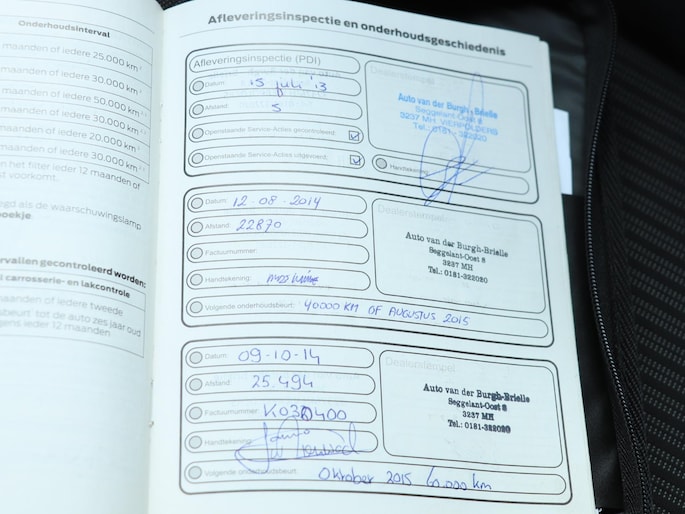 Onderhoudsinterval
maanden of iedere 25.000 km
maanden of iedere 30.000 km
maanden of iedere 50.000 km
maanden of iedere 30.000 km
maanden of iedere 20.000 km
maanden of iedere 30.000 km
het filter ieder 12 maanden of
voorkomt.
gd als de waarschuwingslamp
oekje.
rvallen gecontroleerd worden:
carrosserie- en lakcontrole
maanden of iedere tweede
sbeurt tot de auto zes jaar oud
gens ieder 12 maanden
Afleveringsinspectie en onderhoudsgeschiedenis
Afleveringsinspectie (PDI)
Datum: 15 juli '13
Afstand: 5
Openstaande Service-Acties gecontroleerd:
Openstaande Service-Acties uitgevoerd:
Dealerstempel
Auto van der Burgh-Brielle
Seggelant-Oost 8
3237 MH VIERPOLDERS
Tel.: 0181-322020
Handtekening:
Datum: 12-08-2014
Afstand: 22870
Factuurnummer:
Handtekening:
Volgende onderhoudsbeurt: 40000 KM OF AUGUSTUS 2015
Dealerstempel
Auto van der Burgh-Brielle
Seggelant-Oost 8
3237 MH
Tel.: 0181-322020
Datum: 09-10-14
Afstand: 25.494
Factuurnummer:
Handtekening:
Volgende onderhoudsbeurt: Oktober 2015 60.000 km
Dealerstempel
Auto van der Burgh-Brielle
Seggelant-Oost 8
3237 MH
Tel.: 0181-322020